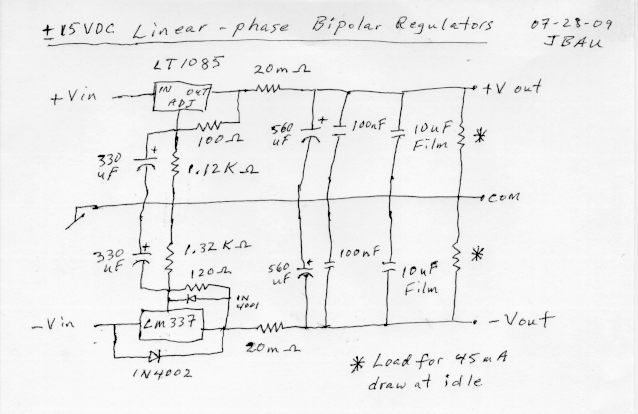 ± 15VDC Linear-phase Bipolar Regulators
07-28-09
JBAU
LT1085
20mΩ
+Vin
IN OUT
ADJ
+V out
100Ω
330
uF
+
1.12KΩ
560
uF
+
100nF
10uF
Film
*
COM
330
uF
+
1.32KΩ
120Ω
1N
4001
560
uF
+
100nF
10uF
Film
*
-Vin
LM337
20mΩ
-Vout
1N4002
* Load for 45mA
draw at idle